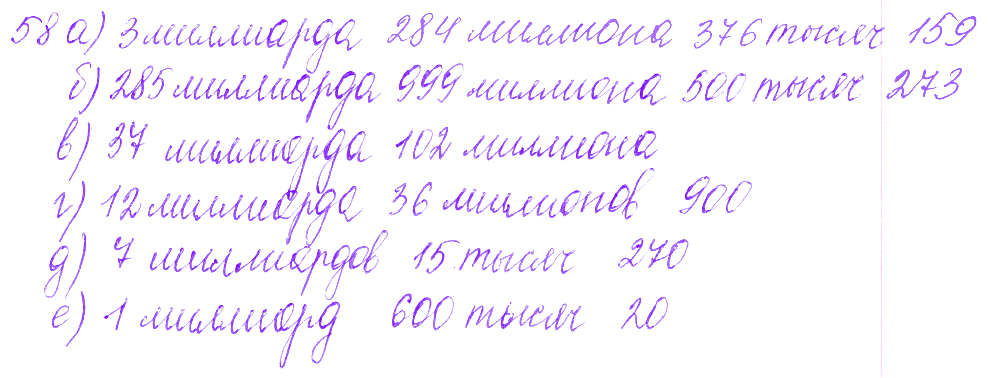 58 а) 3 миллиарда 284 миллиона 376 тысяч 159
б) 285 миллиарда 999 миллиона 500 тысяч 273
в) 37 миллиарда 102 миллиона
г) 12 миллиарда 36 миллионов 900
д) 7 миллиардов 15 тысяч 270
е) 1 миллиард 600 тысяч 20